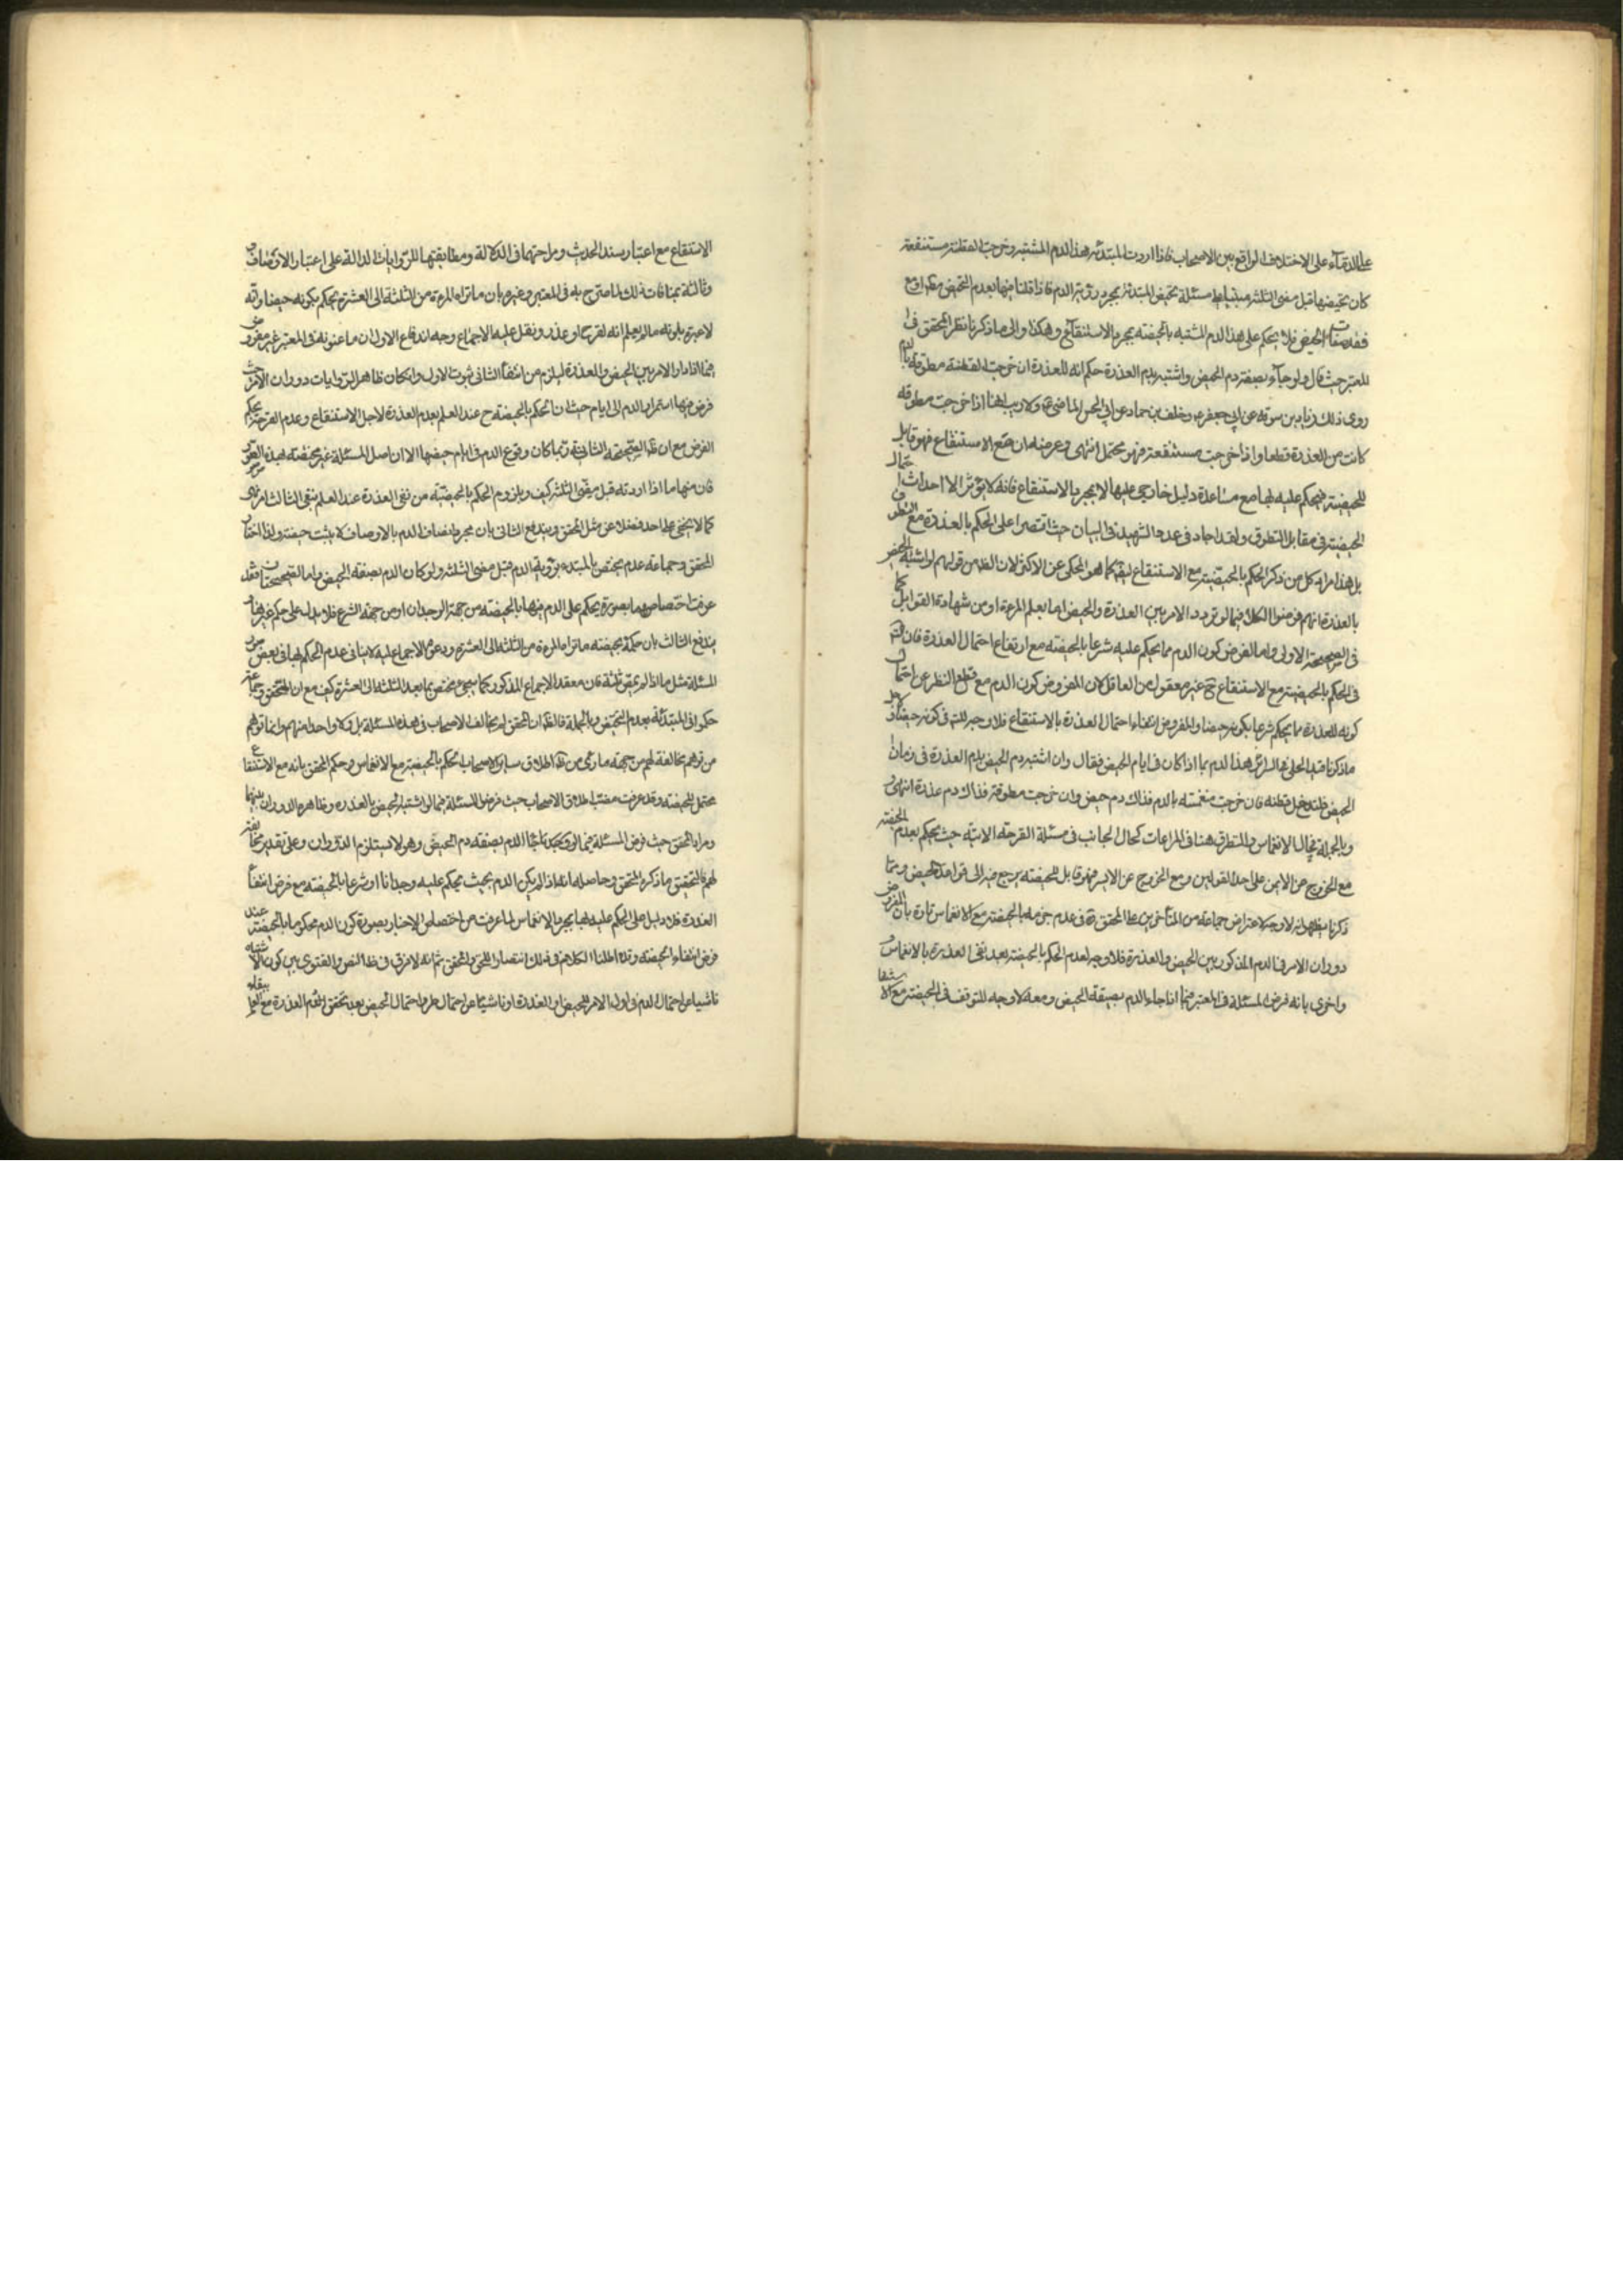 على الدماء على الاختلاف الواقع بين الاصحاب فاذا اردت المبتدئه هذا الدم المشتبه وخرجت القطنة مستنقعة
كان تحيضها قبل مضى الثلثه مبنيا على مسئلة تحيض المبتدئة بمجرد رؤية الدم فاذا قلنا فيها بعدم التحيض مع
فقد صفات الحيض فلا يحكم على هذا الدم المشتبه بالحيضيه بمجرد الاستنقاع وهكذا والى ما ذكرنا نظر المحقق فى
المعتبر حيث قال ولو جاء بصفة دم الحيض واشتبه بدم العذرة حكم انه للعذرة ان خرجت القطنة مطوقة بالدم
روى ذلك زياد بن سوقه عن ابى جعفر ع وخلف بن حماد عن ابى الحسن الماضى ع ولا ريب انها اذا خرجت مطوقه
كانت من العذرة قطعا واذا خرجت مستنقعة فهو محتمل انتهى وغرضه ان مع الاستنقاع فهو قابل
للحيضية فيحكم عليه بها مع مساعدة دليل خارجى عليها لا بمجرد الاستنقاع فانه لا يؤثر الا احداث احتمال
الحيضية فى مقابل التطوق ولقد اجاد فى عد والشهيد فى البيان حيث اقتصرا على الحكم بالعذرة مع التطوق
بل هذا مراد كل من ذكر الحكم بالحيضية مع الاستنقاع ايضا كما هو المحكى عن الاكثر لان الظ من قولهم لو اشتبه الحيض
بالعذرة انهم فرضوا الكلام فيما لو تردد الامر بين العذرة والحيض اما بعلم المرءة او من شهادة القوابل كما
فى الصحيحة الاولى واما لفرض كون الدم مما يحكم عليه شرعا بالحيضيه مع ارتفاع احتمال العذرة فان
فى الحكم بالحيضية مع الاستنقاع ح غير معقول من العاقل لان المفروض كون الدم مع قطع النظر عن احتمال
كونه للعذرة مما يحكم شرعا بكونه حيضا والمفروض انتفاء احتمال العذرة بالاستنقاع فلا وجه للتوقف فى كونه حيضا
ما ذكرنا قيد الحلى فى السرائر هذا الدم بما اذا كان فى ايام الحيض فقال وان اشتبه دم الحيض بدم العذرة فى زمان
الحيض فلتدخل قطنه فان خرجت منغمسه بالدم فذاك دم حيض وان خرجت مطوقة فذاك دم عذرة انتهى
وبالجملة فحال الانغماس والتطوق هنا فى المراعات كحال الجانب فى مسئلة القرحة الاتيه حيث يحكم بعدم الحيضية
مع الخروج من الايمن على احد القولين ومع الخروج عن الايسر فهو قابل للحيضيه يرجع فيه الى قواعد الحيض ومما
ذكرنا يظهر انه لا وجه لاعتراض جماعة من المتأخرين على المحقق ره فى عدم جزمه بالحيضية مع الانغماس تارة بان المفروض
دوران الامر فى الدم المذكور بين الحيض والعذرة فلا وجه لعدم الحكم بالحيضية بعد نفى العذرة بالانغماس
واخرى بانه فرض المسئلة فى المعتبر فيما اذا جاء الدم بصيغة الحيض ومعه لا وجه للتوقف فى الحيضية مع
الاستنقاع مع اعتبار سند الحديث وصراحتهما فى الدلالة ومطابقتها للروايات الدالة على اعتبار الاوصاف
وثالثة بمنافات ذلك لما صرح به فى المعتبر وغيره بان ما تراه المرءة من الثلثة الى العشرة يحكم بكونه حيضا وانه
لا عبرة بلونه ما لم يعلم انه لقرح او عذرة ونقل عليه الاجماع وجه اندفاع الاول ان ما عنونه فى المعتبر غير مفروض
فيما اذا دار الامر بين الحيض والعذرة ليلزم من انتفاء الثانى ثبوت الاول وان كان ظاهر الروايات دوران الامر
فرض فيها استمرار الدم الى ايام حيث ان الحكم بالحيضيه ح عند العلم بعدم العذرة لاجل الاستنقاع وعدم القرحة بحكم
الفرض مع ان ظ الصحيحة الثانية ربما كان وقوع الدم فى ايام حيضها الا ان اصل المسئلة غير مختصه بهذه الصور
فان منها ما اذا اردته قبل مضى الثلثه كيف ويلزوم الحكم بالحيضيه من نفى العذرة عند العلم بنفى الثالث
كما لا يخفى على احد فضلا عن مثل المحقق ويندفع الثانى بان مجرد اتصاف الدم بالاوصاف لا يثبت حيضية ولذا اختار
المحقق وجماعة عدم تحيض المبتدئه برؤية الدم قبل مضى الثلثه ولو كان الدم بصفة الحيض واما الصحيحتان فقد
عرفت اختصاصهما بصورة يحكم على الدم فيها بالحيضيه من جهة الوجدان او من جهة الشرع فلا يدل على حكم غيرها
يندفع الثالث بان حكمه بحيضيه ما تراه المرءة من الثلثه الى العشرة ودعوى الاجماع عليه لا ينافى عدم الحكم بها فى بعض صور
المسئلة مثل ما اذا لم يبق ثلثة فان معقد الاجماع المذكور كما سيجئ مختص بما بعد الثلثه الى العشرة كيف مع ان المحقق وجماعة
حكموا فى المبتدئه بعدم التحيض وبالجملة فالظ ان المحقق لم يخالف الاصحاب فى هذه المسئلة بل ولا واحدا منهم وانما توهم
من توهم مخالفته لهم من جهة ما رءى من ظ اطلاق ساير الاصحاب الحكم بالحيضية مع الانغماس وحكم المحقق بانه مع الاستنقاع
محتمل للحيضيه وقد عرفت مبنى اطلاق الاصحاب حيث فرض المسئلة فيما لو اشتبه الحيض بالعذرة وظاهره الدوران بينهما
ومراد المحقق حيث فرض المسئلة فيما لو جاء الدم بصفه دم الحيض وهو لا يستلزم الدوران وعلى تقدير مخالفته
لهم فالتحقيق ما ذكره المحقق وحاصله انه اذا لم يكن الدم بحيث يحكم عليه وجدانا او شرعا بالحيضيه مع فرض انتفاء
العذرة فلا دليل على الحكم عليه بها بمجرد الانغماس لما عرفت من اختصاص الاخبار بصورة كون الدم محكوما بالحيضية عند
فرض انتفاء الحيضيه وقد اطلنا الكلام فى ذلك انتصارا للحق والمحقق ثم انه لا فرق فى ظ النص والفتوى بين كون الاشتباه
ناشيا عن احتمال الدم فى اول الامر للحيض او العذرة او ناشيا عن احتمال طرو احتمال الحيض بعد تحقق دم العذرة مع العلم